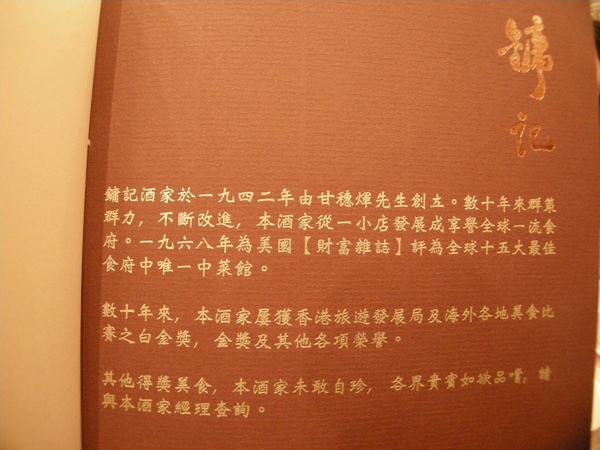 鏞記
鏞記酒家於一九四二年由甘穗煇先生創立。數十年來群策
群力，不斷改進，本酒家從一小店發展成享譽全球一流食
府。一九六八年為美國【財富雜誌】評為全球十五大最佳
食府中唯一中菜館。
數十年來，本酒家屢獲香港旅遊發展局及海外各地美食比
賽之白金獎，金獎及其他各項榮譽。
其他得獎美食，本酒家未敢自珍，各界貴賓如欲品嚐，請
與本酒家經理查詢。